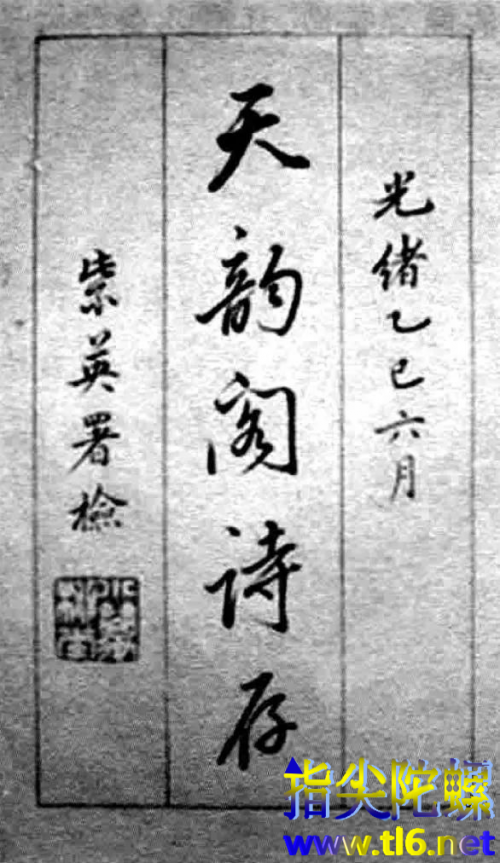 光緒乙巳六月
天韵阁诗存
紫英署檢
指尖陀螺
www.tl6.net